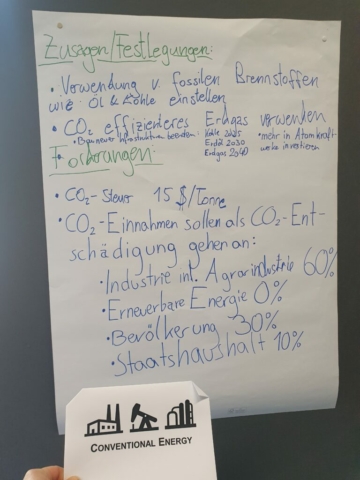 Zusagen/Festlegungen:
• Verwendung v. fossilen Brennstoffen
wie Öl & Kohle einstellen
• CO2 effizienteres Erdgas verwenden
Kohle 2025
Erdöl 2030
Erdgas 2040
• mehr in Atomkraft-
werke investieren
Forderungen:
• CO2-Steuer 15 $/Tonne
• CO2-Einnahmen sollen als CO2-Ent-
schädigung gehen an:
• Industrie int. Agrarindustrie 60%
• Erneuerbare Energie 0%
• Bevölkerung 30%
• Staatshaushalt 10%
CONVENTIONAL ENERGY